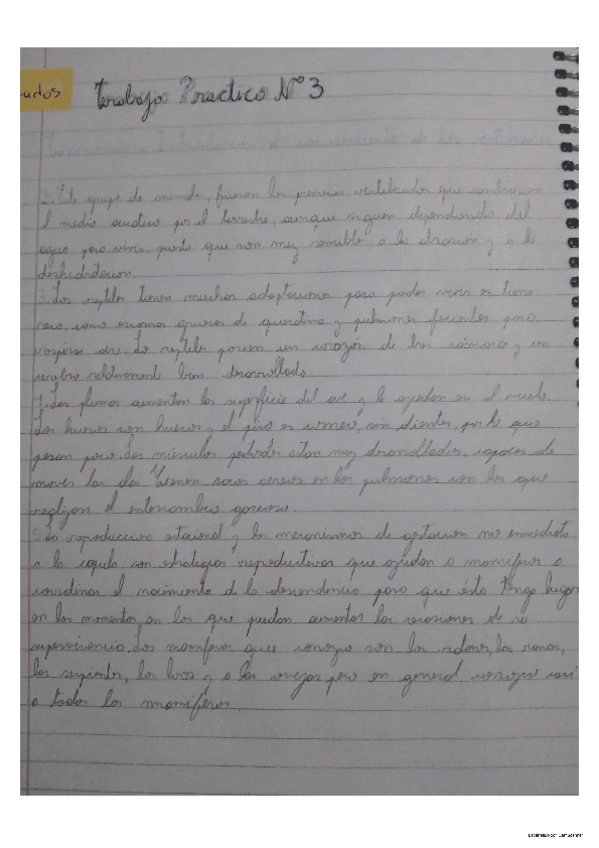 udos
Trabajo Practico N°3
2. Este grupo de animales, fueron los primeros vertebrados que cambiaron
el medio acuático por el terrestre, aunque siguen dependiendo del
agua para vivir, puesto que son muy sensibles a la y a la
deshidratacion.
3. Los reptiles tienen muchas adaptaciones para poder vivir en tierra
seca, como escamas gruesas de queratina y pulmones eficientes para
respirar aire. Lo reptiles poseen un corazón de tres cámaras y un
cerebro relativament bien desarrollado
4. Las plumas aumentan la superficie del ave y le ayudan en el vuelo.
Los huesos son huecos y el pico es corneo, sin dientes, por lo que
pesan poco. Los músculos pectorales estan muy desarrollados, capaces de
mover las alas. Tienen sacos aereos en los pulmones con los que
realizan el intercambio gaseoso.
5. La reproduccion estacional y los mecanismos de gestacion no inmediata
a la copula son estrategias reproductivas que ayudan a mamiferos a
coordinar el nacimiento de la descendencia para que ésta tenga lugar
en los momentos en los que puedan aumentar las de su
supervivencia. Los mamiferos que conozco son los ratones, las ranas,
las serpientes, los y a las ovejas pero en general conozco casi
a todos los mamiferos.